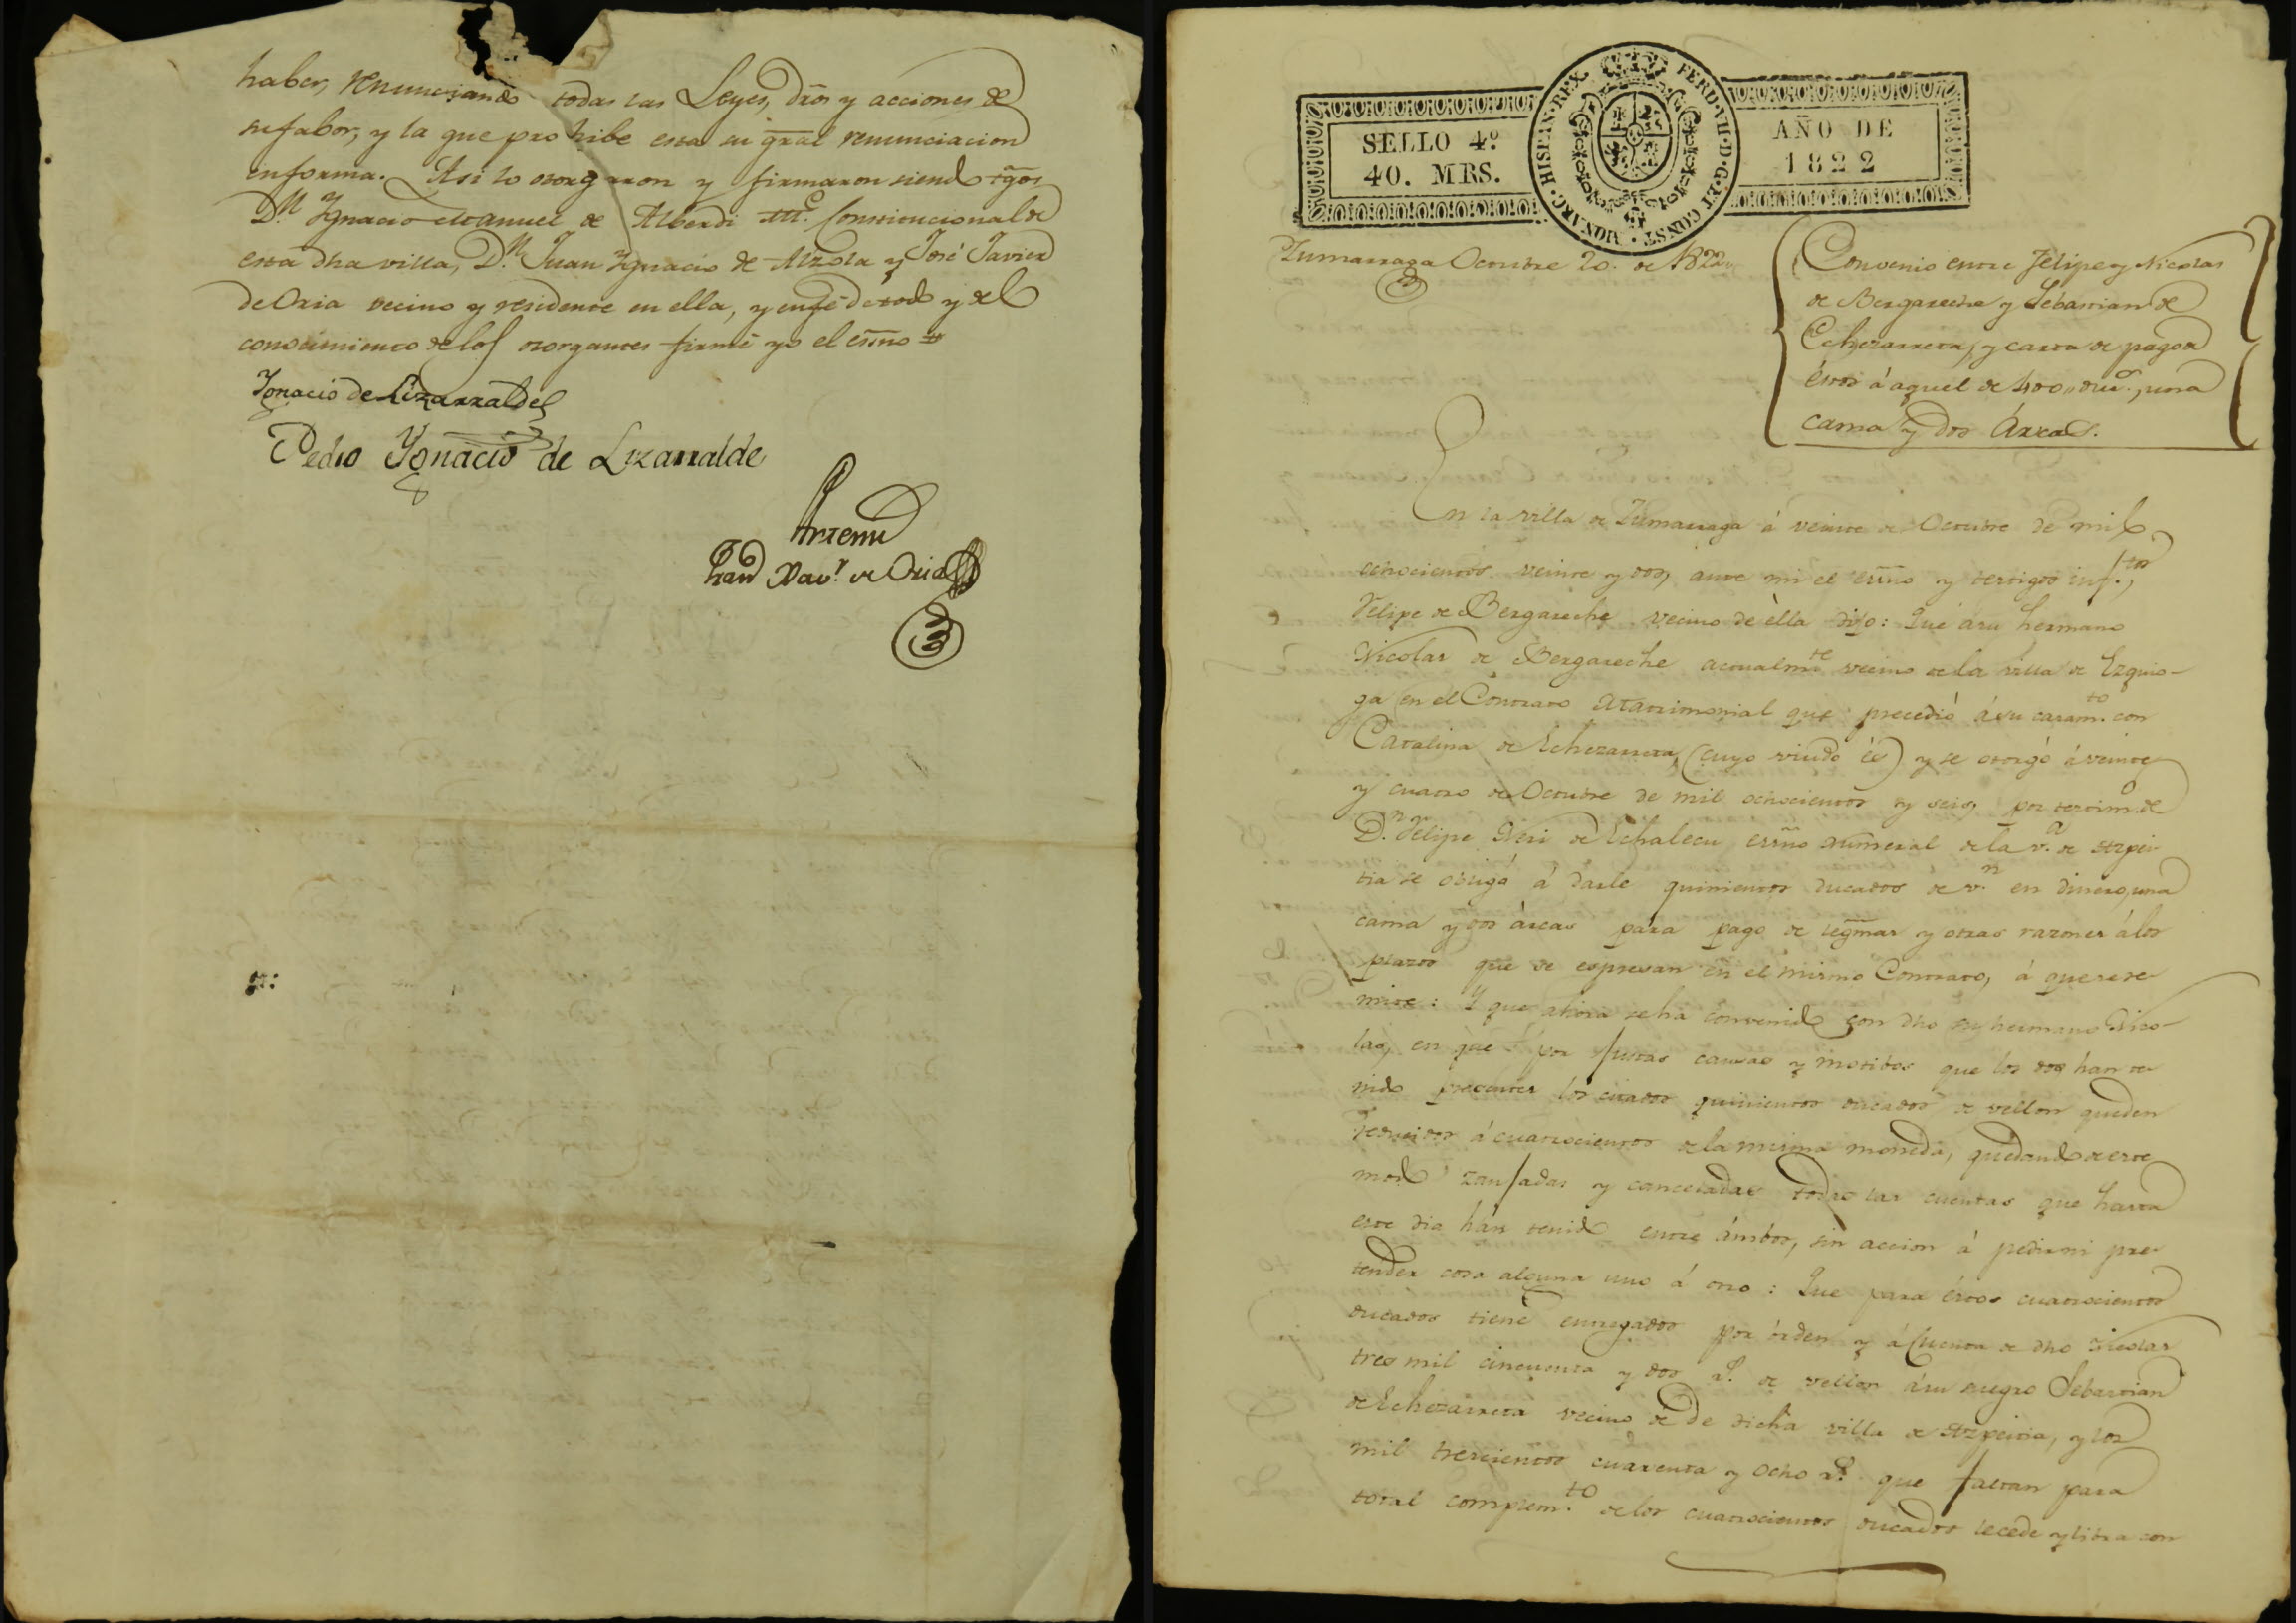 haber, renunciando todas las Leyes, dr̃os y acciones de
su fabor, y la que prohibe esta su gr̃al renunciacion
en forma. Asi lo otorgaron y firmaron siendo tg̃os
D.n Ygnacio Manuel de Alberdi Constitucional de
esta dha villa, D.n Juan Ygnacio de Alzola y José Javier
de Oria vecino y residente en ella, y en fé de todo y del
conocimiento de los otorgantes firmé yo el esr̃no
Ygnacio de Lizarralde
Pedro Ygnacio de Lizarralde
Antemi
Xav.r de Oria
SELLO 4.º
40. MRS.
HISPAN·REX. FERD·VII·D·G·ET CONST· MONARC·
AÑO DE
1822
Zumarraga Octubre 20. de 1822
Convenio entre Felipe y Nicolas
de Bergareche y Sebastian de
Echezarreta, y carta de pago de
éstos á aquel de 400,, duc.s, una
cama y dos Árcas.
En la villa de Zumarraga á veinte de Octubre de mil
ochocientos veinte y dos, ante mi el esr̃no y testigos inf.tos
Felipe de Bergareche vecino de élla dijo: Que á su hermano
Nicolas de Bergareche actualm.te vecino de la villa de Ezquio-
ga en el Contrato Matrimonial que precedió á su casam.to con
Catalina de Echezarreta, (cuyo viudo és) y se otorgó á veinte
y cuatro de Octubre de mil ochocientos y seis, por testim.o de
D.n Felipe Neri de Echalecu esr̃no numeral de la v.a de Azpei-
tia se obligó á darle quinientos ducados de v.n en dinero, una
cama y dos árcas para pago de legm̃as y otras razones á los
plazos que se espresan en el mismo Contrato, á que se re-
mite: Y que ahora se ha convenido con dho su hermano Nico-
las, en que por justas causas y motibos que los dos han te-
nido presentes los citados quinientos ducados de vellon queden
reducidos á cuatrocientos de la misma moneda, quedando de este
modo zanjadas y canceladas todas las cuentas que hasta
este dia hán tenido entre ámbos, sin accion á pedir ni pre-
tender cosa alguna uno á otro: Que para éstos cuatrocientos
ducados tiene entregados por órden y á cuenta de dho Nicolas
tres mil cincuenta y dos r.s de vellon á su suegro Sebastian
de Echezarreta vecino de de dicha villa de Azpeitia, y los
mil trescientos cuarenta y ocho r.s que faltan para
total complem.to de los cuatrocientos ducados le cede y libra con